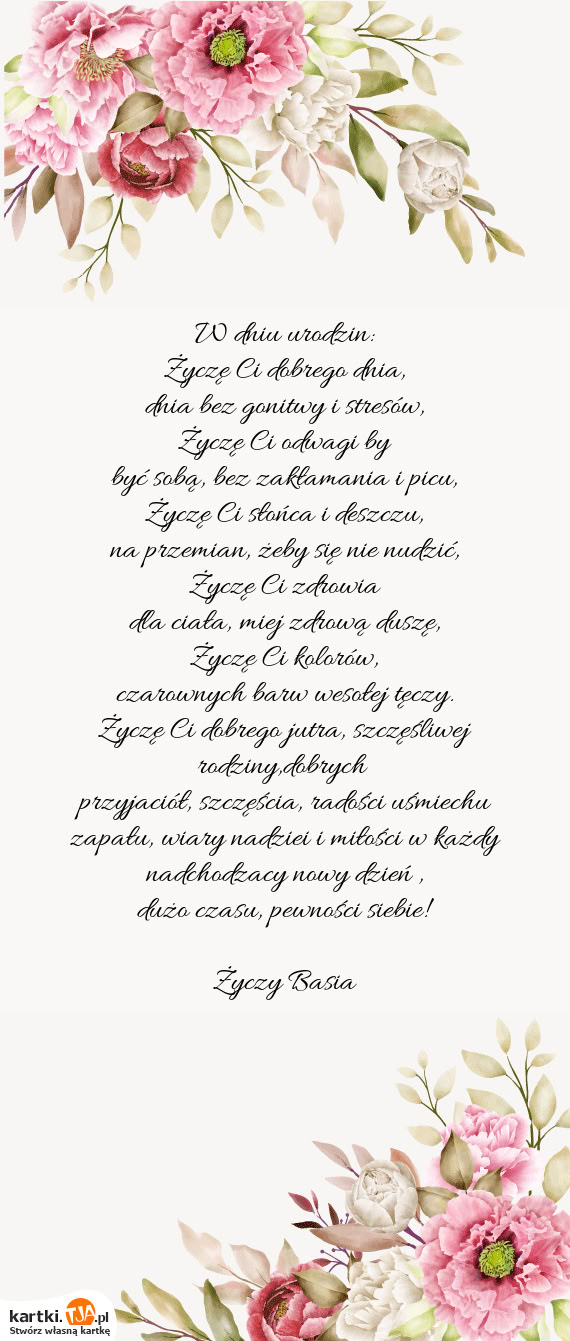 W dniu urodzin:
Życzę Ci dobrego dnia,
dnia bez gonitwy i stresów,
Życzę Ci odwagi by
być sobą, bez zakłamania i picu,
Życzę Ci słońca i deszczu,
na przemian, żeby się nie nudzić,
Życzę Ci zdrowia
dla ciała, miej zdrową duszę,
Życzę Ci kolorów,
czarownych barw wesołej tęczy.
Życzę Ci dobrego jutra, szczęśliwej
rodziny,dobrych
przyjaciół, szczęścia, radości uśmiechu
zapału, wiary nadziei i miłości w każdy
nadchodzacy nowy dzień ,
dużo czasu, pewności siebie!
Życzy Basia
kartki.TJA.pl
Stwórz własną kartkę